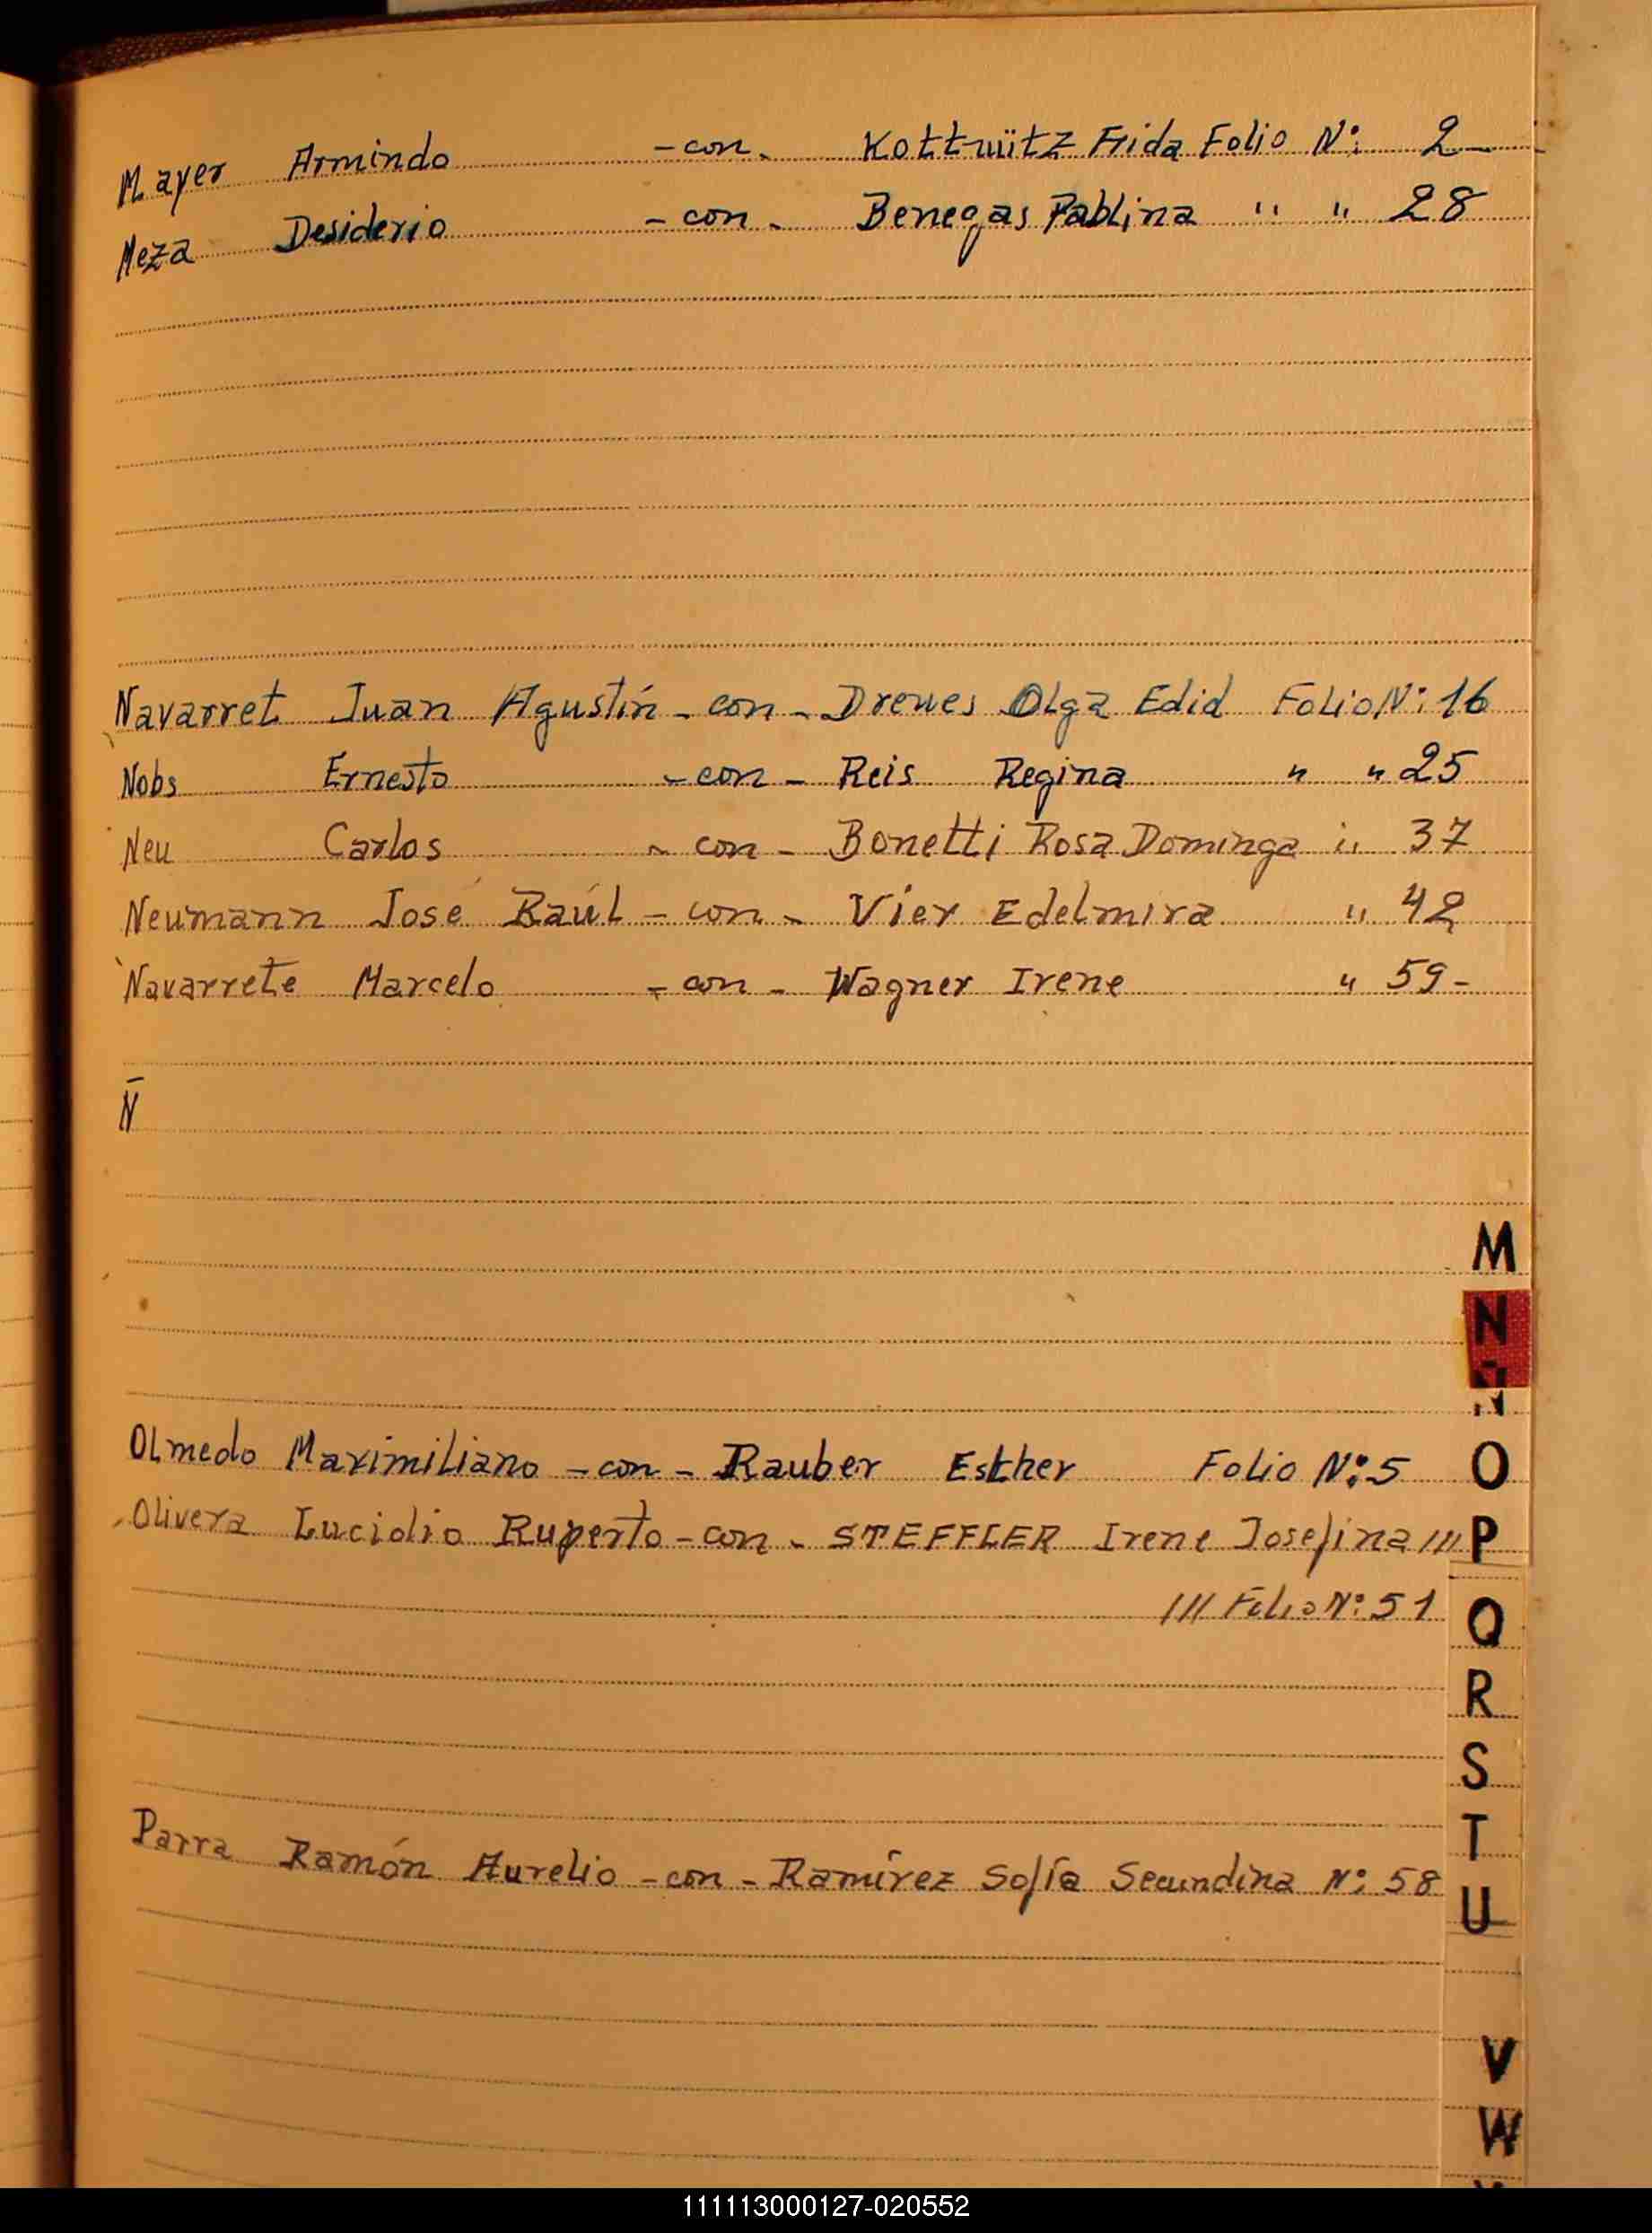 Mayer Armindo - con - Kottwütz Frida Folio N: 2 -
Meza Desiderio - con - Benegas Pablina " " 28
Navarret Juan Agustín - con - Drewes Olga Edid Folio N: 16
Nobs Ernesto - con - Reis Regina " " 25
Neu Carlos - con - Bonetti Rosa Dominga " 37
Neumann José Raúl - con - Vier Edelmira " 42
Navarrete Marcelo - con - Wagner Irene " 59 -
Ñ
Olmedo Maximiliano - con - Rauber Esther Folio N: 5
Olivera Luciolio Ruperto - con - STEFFLER Irene Josefina ///
/// Folio N: 51
Parra Ramón Aurelio - con - Ramírez Sofía Secundina N: 58
M
N
Ñ
O
P
Q
R
S
T
U
V
W
111113000127-020552